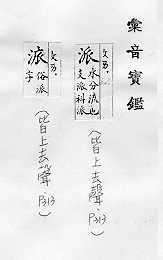 彙音寶鑑
文五.
派 水分流也
支派科派
(皆上去聲. P313)
文五.
派 俗派
字
(皆上去聲. P313)